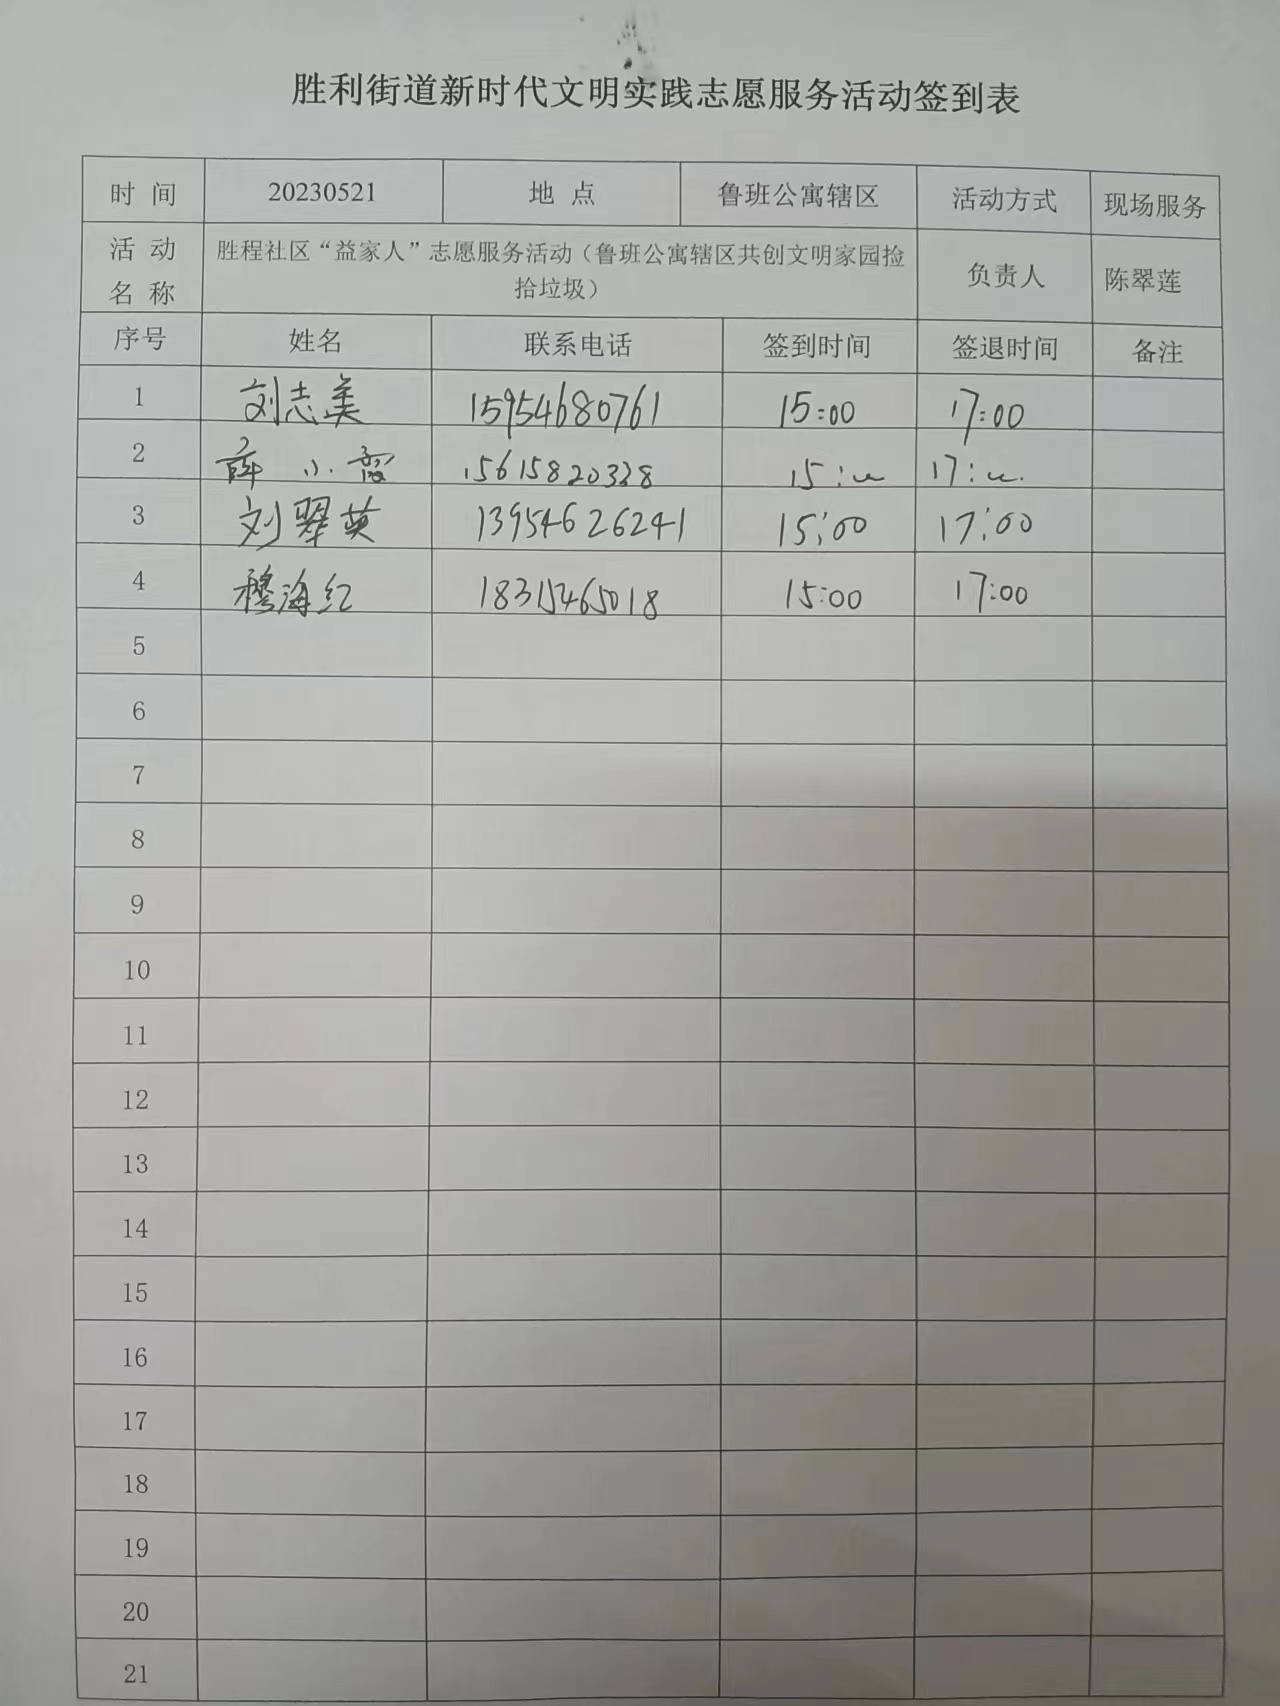 胜利街道新时代文明实践志愿服务活动签到表
时 间 20230521 地 点 鲁班公寓辖区 活动方式 现场服务
活 动 名 称 胜程社区“益家人”志愿服务活动（鲁班公寓辖区共创文明家园捡
拾垃圾） 负责人 陈翠莲
序号 姓名 联系电话 签到时间 签退时间 备注
1 刘志美 15954680761 15:00 17:00
2 薛小霞 15615820338 15:00 17:00
3 刘翠英 13954626241 15:00 17:00
4 穆海红 18315465018 15:00 17:00
5
6
7
8
9
10
11
12
13
14
15
16
17
18
19
20
21